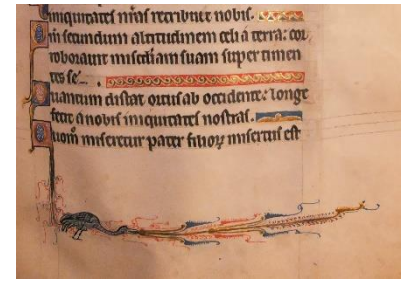 iniquitates nr̄as retribuit nobis.
m̄ secundum altitudinem celi a terra: cor
roborauit misc̄diam suam super timen
tes se.
Quantum distat ortus ab occidente: longe
fecit a nobis iniquitates nostras.
Quom̄ miseretur pater filioꝝ misertus est